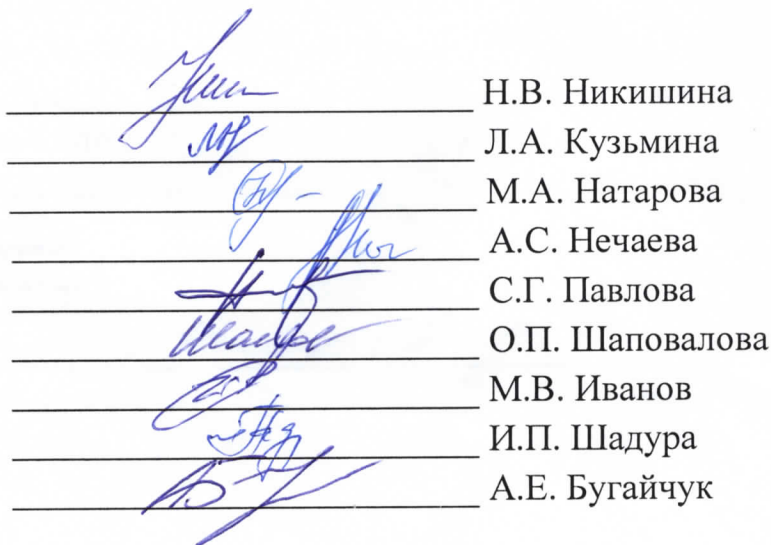 Н.В. Никишина
Л.А. Кузьмина
М.А. Натарова
А.С. Нечаева
С.Г. Павлова
О.П. Шаповалова
М.В. Иванов
И.П. Шадура
А.Е. Бугайчук